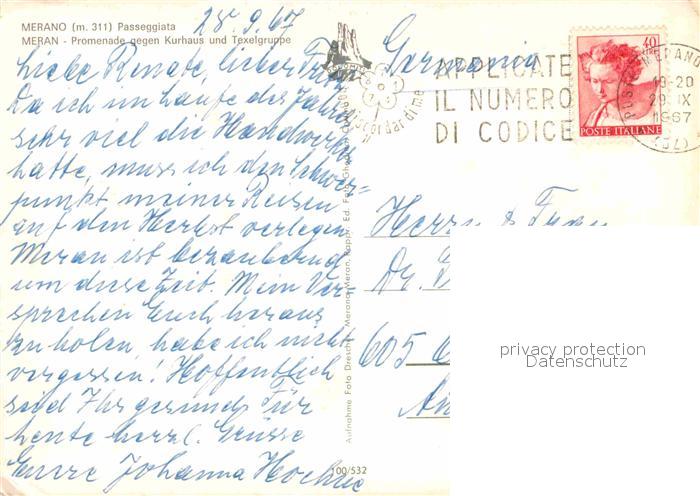 MERANO (m. 311) Passeggiata
MERAN - Promenade gegen Kurhaus und Texelgruppe
28. 9. 67
Liebe Renate, lieber
Da ich im Laufe des Jahres
sehr viel die Handwerker
hatte, muss ich den Schwer=
punkt meiner Reisen
auf den Herbst verlegen
Meran ist bezaubernd
um diese Zeit. Mein Ver-
sprechen Euch heraus
zu holen, habe ich nicht
vergessen! Hoffentlich
seid Ihr gesund. Für
heute herzl. Grüsse
Eure Johanna
Germania
APPLICATE
IL NUMERO
DI CODICE
non ti scordar di me
40
LIRE
POSTE ITALIANE
MERANO
19-20
29. IX
1967
(BZ)
Herrn & Frau
Dr.
605
Aufnahme Foto Drescher Merano-Meran, Rappr. Ed. Foto
100/532
privacy protection
Datenschutz